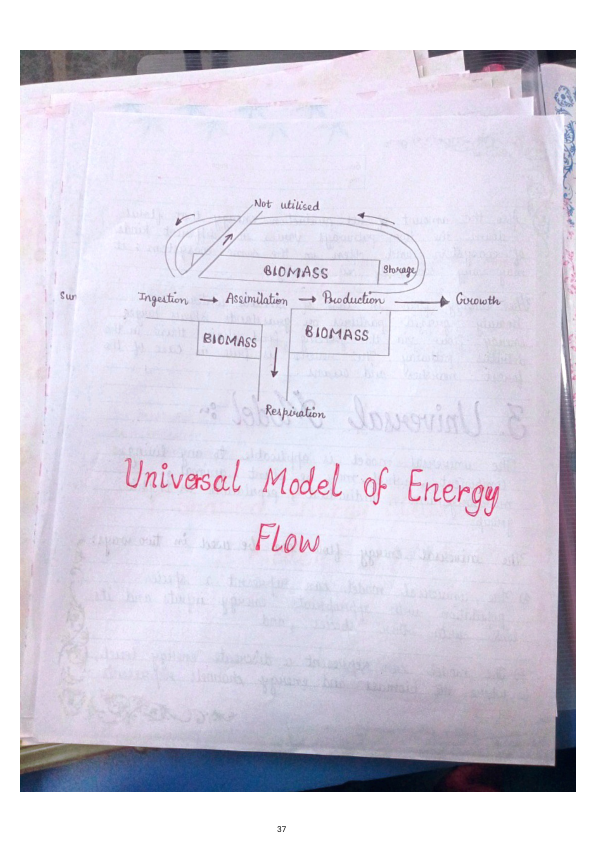 Not utilised
BIOMASS
Storage
Sun
Ingestion → Assimilation → Production → Growth
BIOMASS
BIOMASS
Respiration
Universal Model of Energy
Flow
37